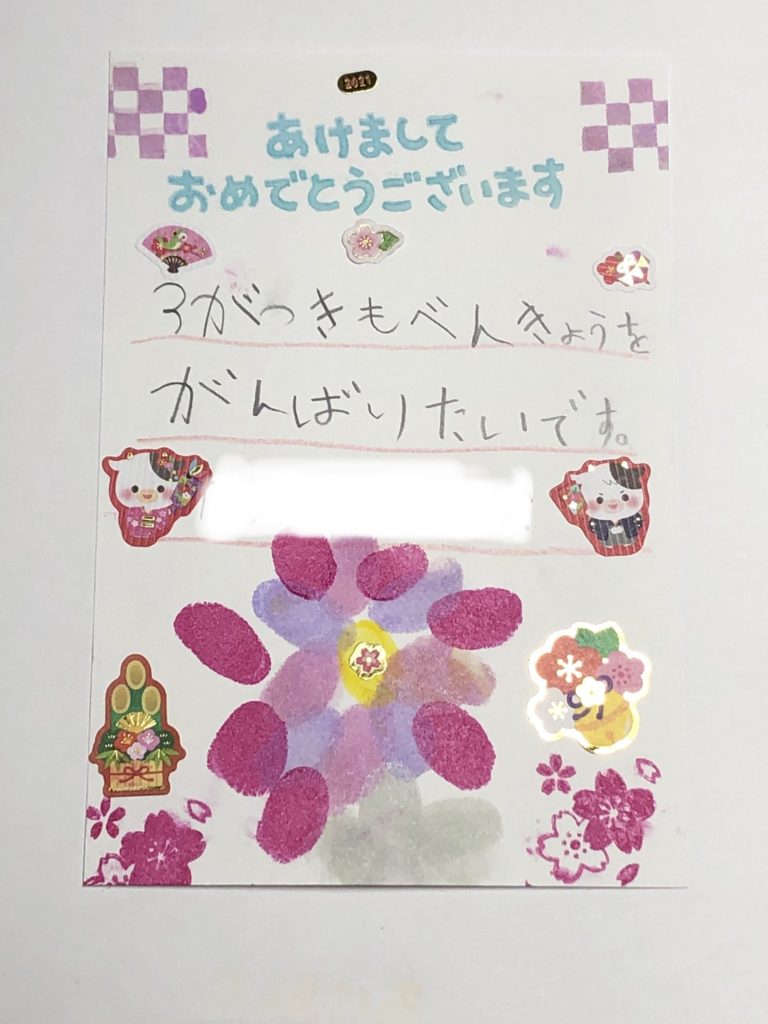 2021
あけまして
おめでとうございます
3がっきもべんきょうを
がんばりたいです。